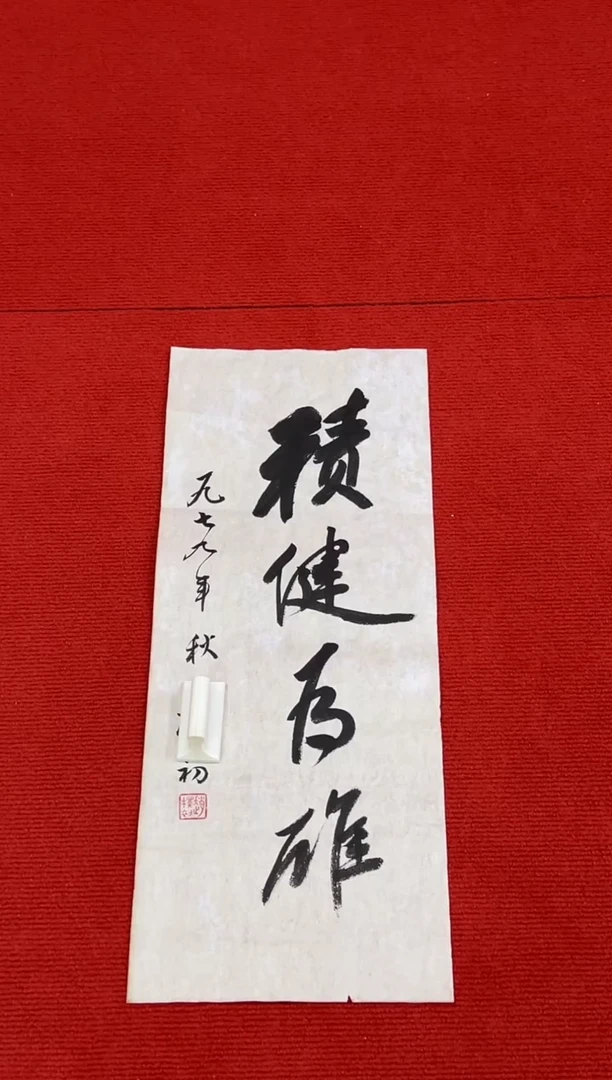 積健为雄
九七九年秋
初